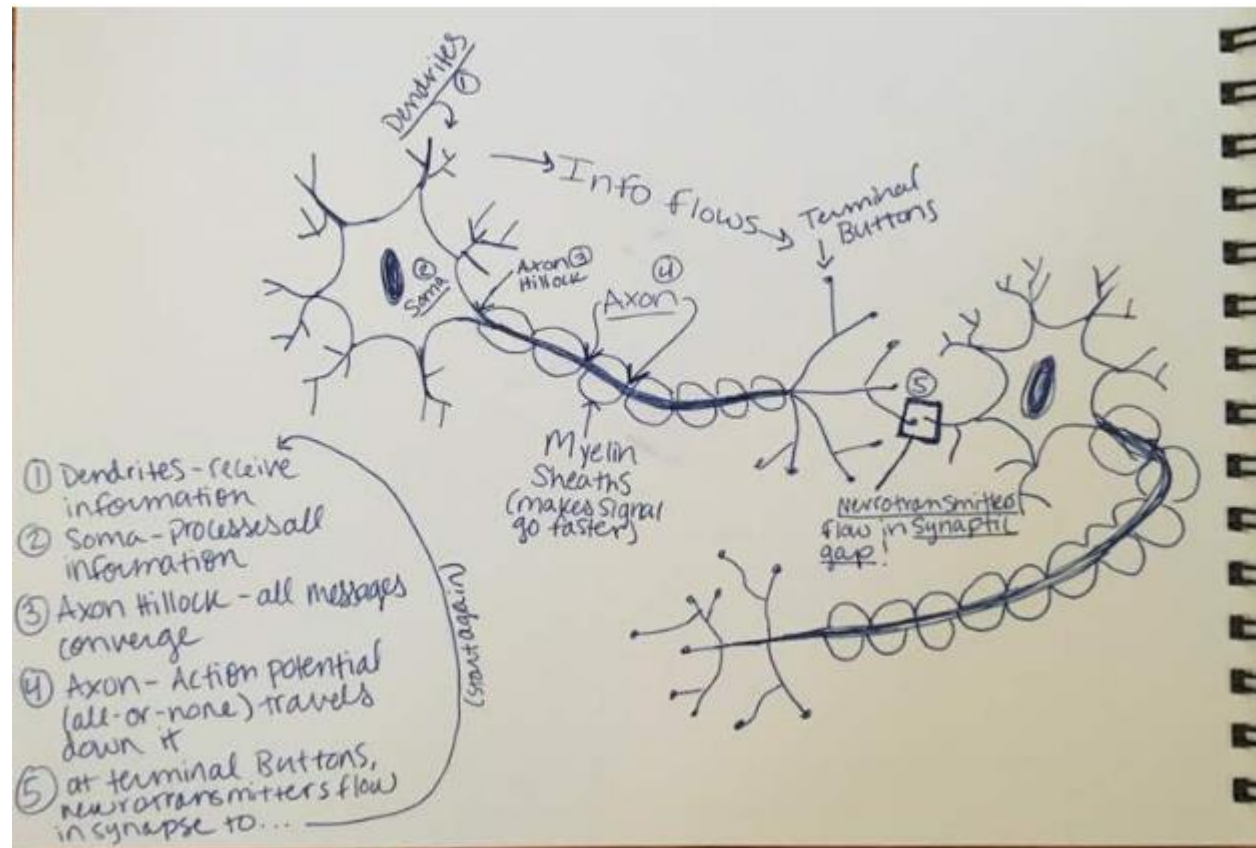 Dendrites
①
→ Info flows →
Terminal
Buttons
Axon ③
Hillock
②
Soma
④
Axon
⑤
Myelin
Sheaths
(makes signal
go faster)
Neurotransmitted
flow in synaptic
gap!
① Dendrites - receive
information
② Soma - Processes all
information
③ Axon Hillock - all messages
converge
④ Axon - Action potential
(all-or-none) travels
down it
⑤ at terminal Buttons,
neurotransmitters flow
in synapse to...
(start again)